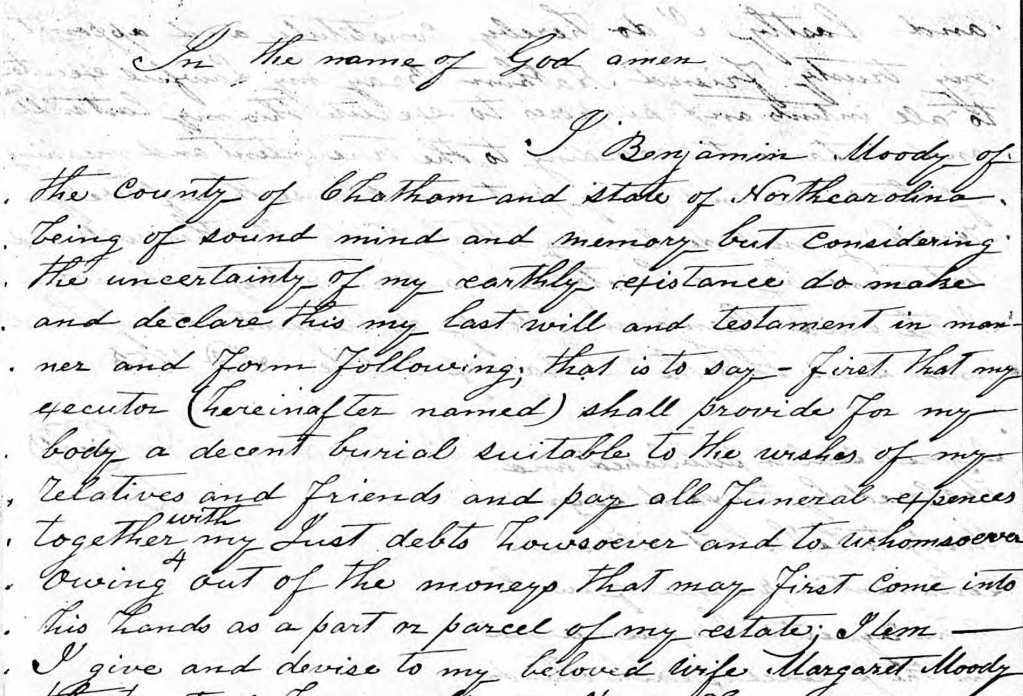 In the name of God amen
I Benjamin Moody of
the county of Chatham and state of Northcarolina.
being of sound mind and memory but considering
the uncertainty of my earthly existance do make
and declare this my last will and testament in man-
ner and form following; that is to say - first that my
executor (hereinafter named) shall provide for my
body a decent burial suitable to the wishes of my
relatives and friends and pay all funeral expences
together with my Just debts howsoever and to whomsoever
owing out of the moneys that may first come into
his hands as a part or parcel of my estate; Item —
I give and devise to my beloved wife Margaret Moody